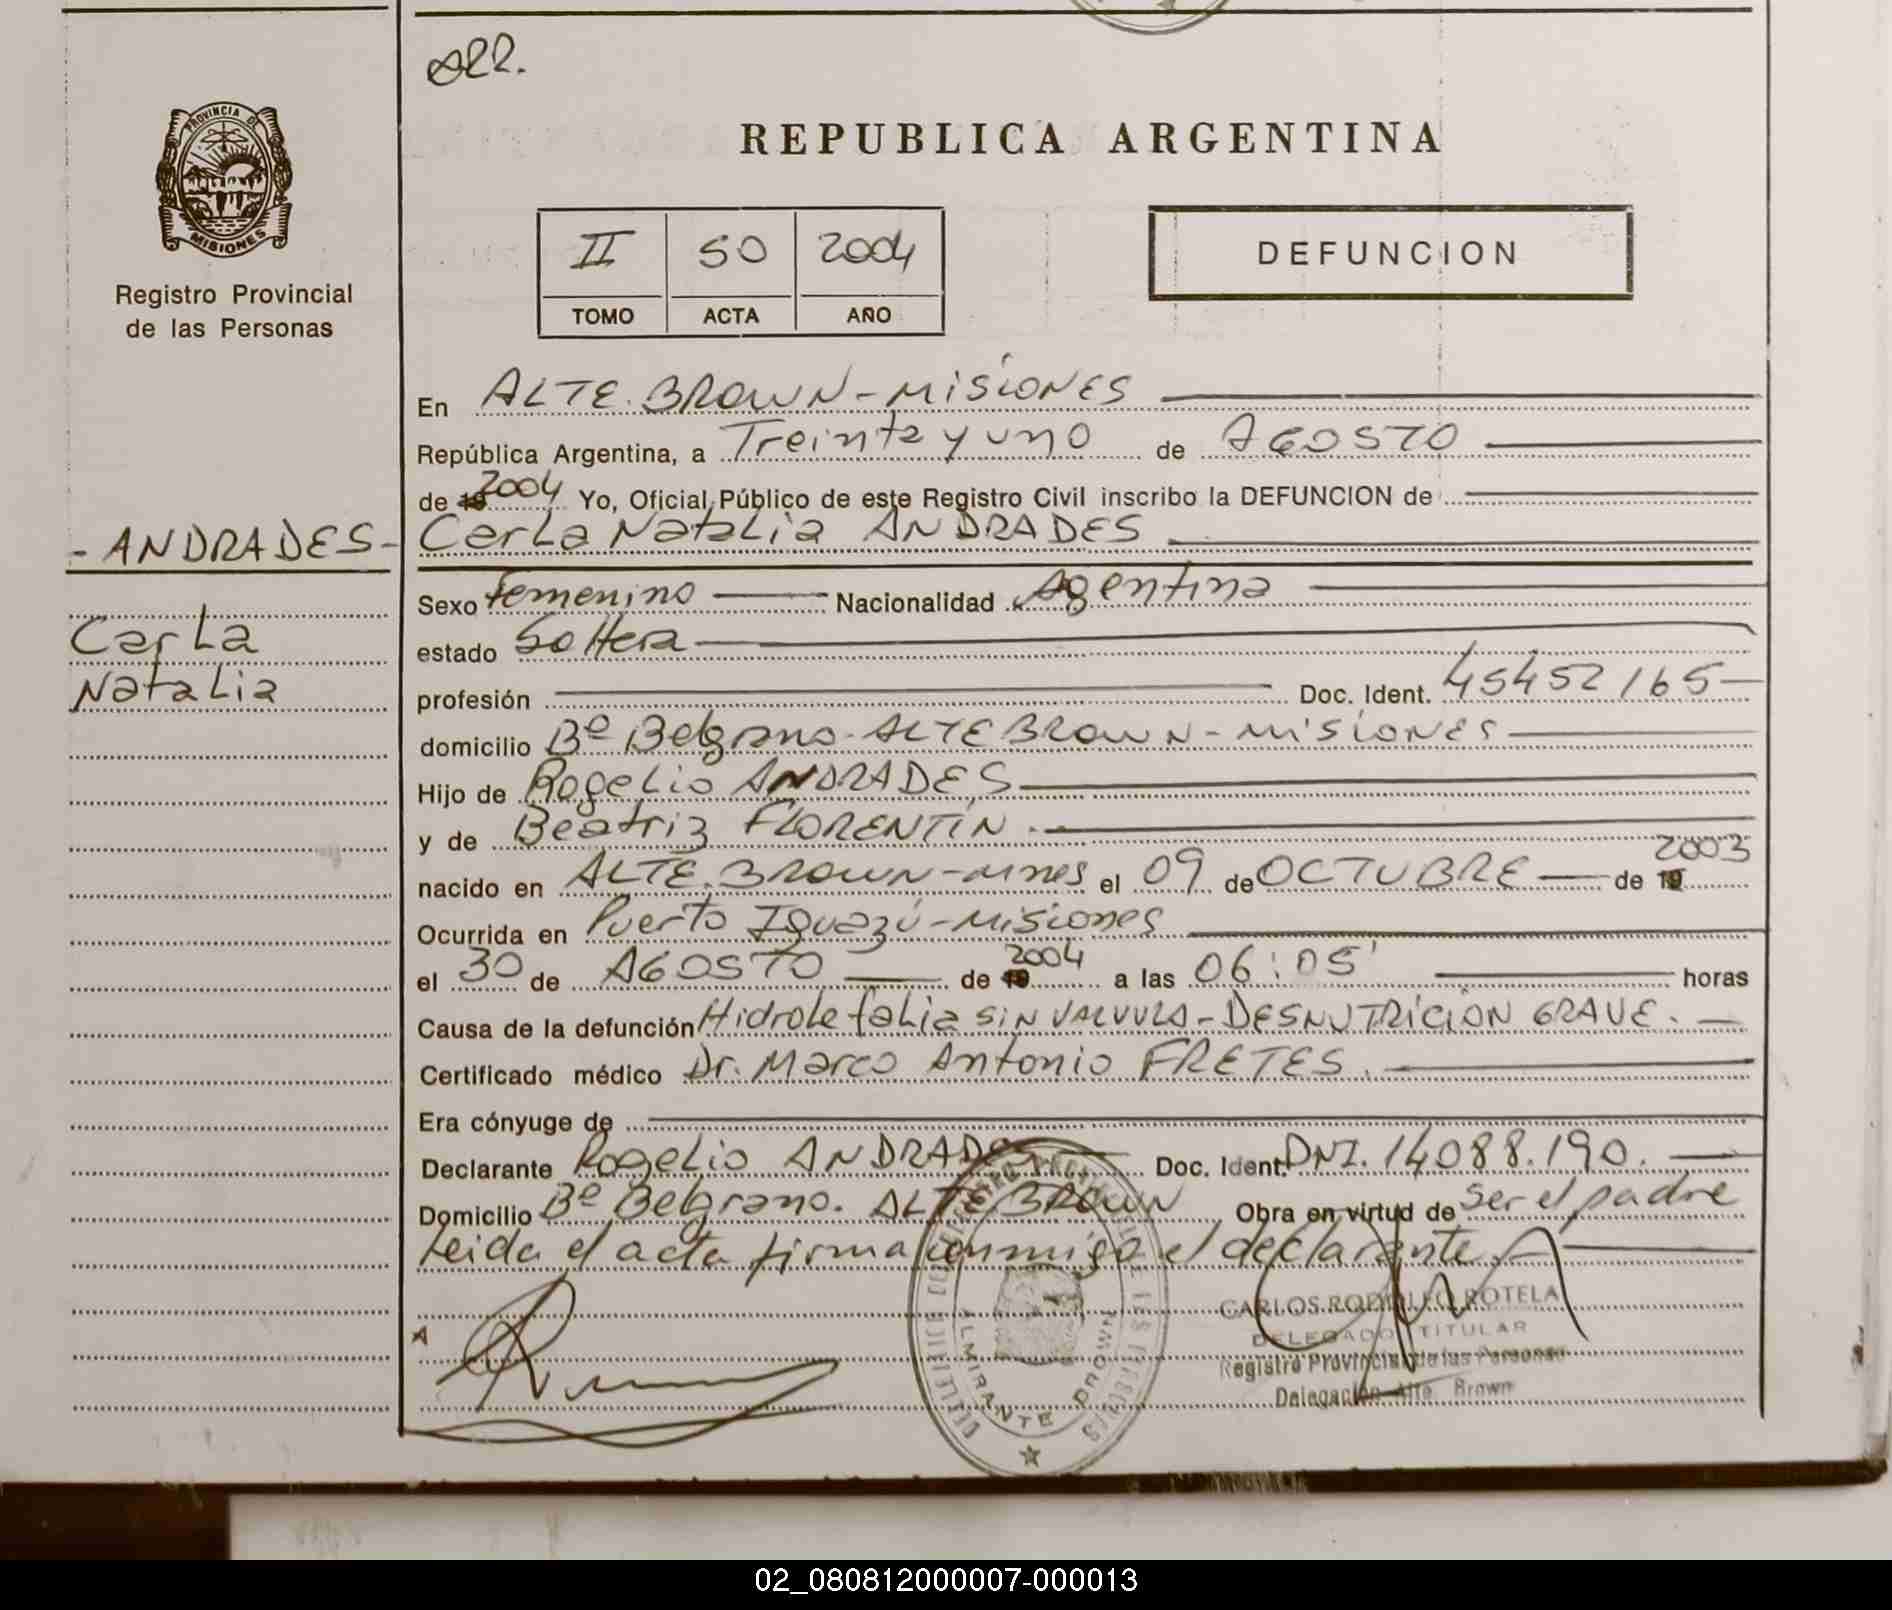 PROVINCIA DE
MISIONES
Registro Provincial
de las Personas
- ANDRADES -
Carla
Natalia
REPUBLICA ARGENTINA
II 50 2004
TOMO ACTA AÑO
DEFUNCION
En ALTE. BROWN - MISIONES
República Argentina, a Treinta y uno de AGOSTO
de 19 2004 Yo, Oficial Público de este Registro Civil inscribo la DEFUNCION de
Carla Natalia ANDRADES
Sexo Femenino Nacionalidad Agentina
estado Soltera
profesión Doc. Ident. 45452165
domicilio Bº Belgrano - ALTE BROWN - MISIONES
Hijo de Rogelio ANDRADES
y de Beatriz FLORENTÍN.
nacido en ALTE. BROWN - Mnes el 09 de OCTUBRE de 19 2003
Ocurrida en Puerto Iguazú - Misiones
el 30 de AGOSTO de 19 2004 a las 06:05' horas
Causa de la defunción Hidrolefalia SIN VALVULA - DESNUTRICIÓN GRAVE.
Certificado médico Dr. Marco Antonio FRETES.
Era cónyuge de
Declarante Rogelio ANDRADES Doc. Ident. DNI. 14088.190.
Domicilio Bº Belgrano. ALTE BROWN Obra en virtud de ser el padre
Leida el acta firma conmigo el declarante
CARLOS RODOLFO ROTELA
DELEGADO TITULAR
Registro Provincial de las Personas
Delegación Alte. Brown
ALMIRANTE BROWN
02_080812000007-000013